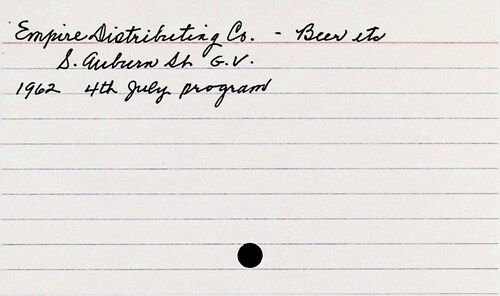 Empire Distributing Co. - Beer etc
S. Auburn St. G.V.
1962 4th July program